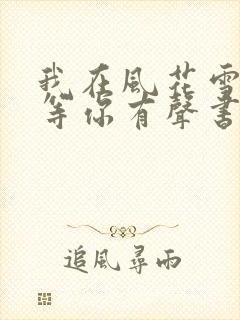 我在風花雪
等你有聲書
追風尋雨